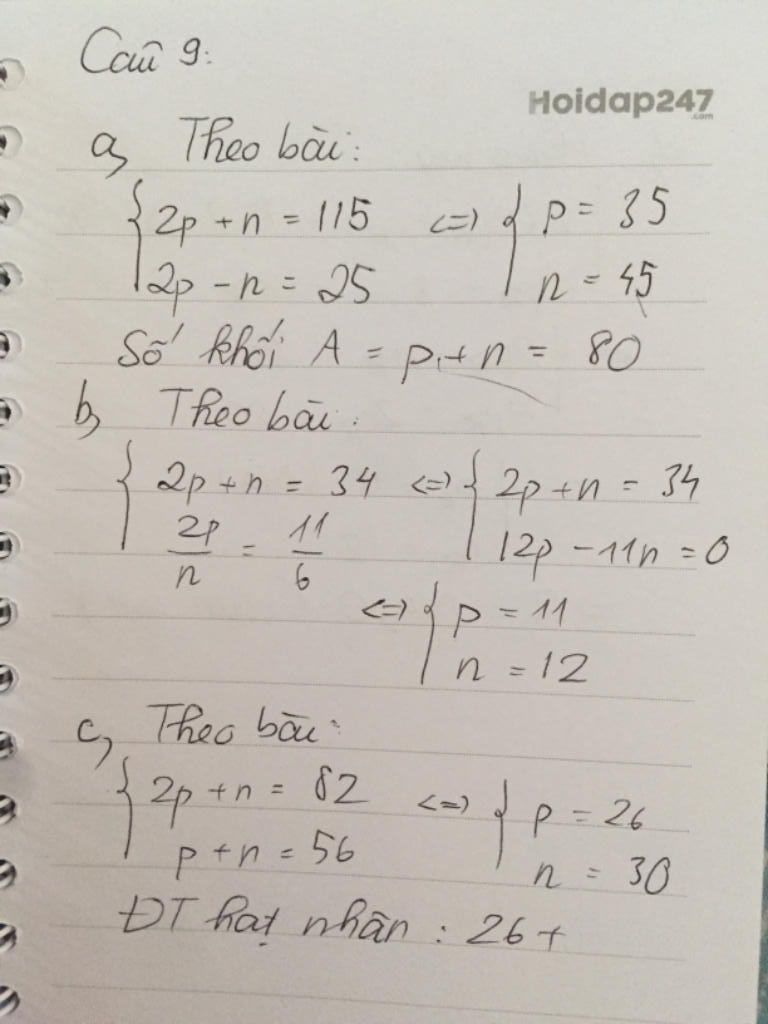 Câu 9:
Hoidap247
.com
a, Theo bài:
{ 2p + n = 115 <=> { p = 35
2p - n = 25 n = 45
Số khối A = p + n = 80
b, Theo bài:
{ 2p + n = 34 <=> { 2p + n = 34
2p/n = 11/6 12p - 11n = 0
<=> { p = 11
n = 12
c, Theo bài:
{ 2p + n = 82 <=> { p = 26
p + n = 56 n = 30
ĐT hạt nhân : 26+